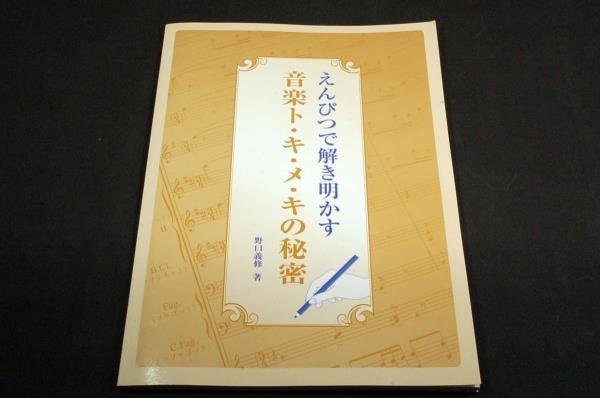 えんぴつで解き明かす
音楽ト・キ・メ・キの秘密
野口義修 著
II
B.Cl.
Fag.
C Fag.